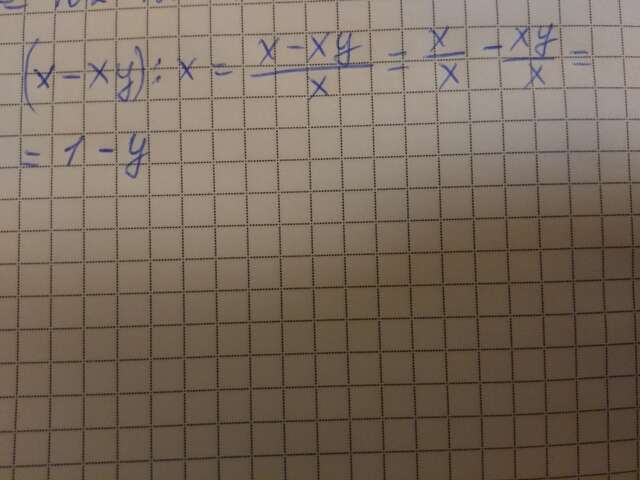 (x - xy) : x = \frac{x - xy}{x} = \frac{x}{x} - \frac{xy}{x} =
= 1 - y